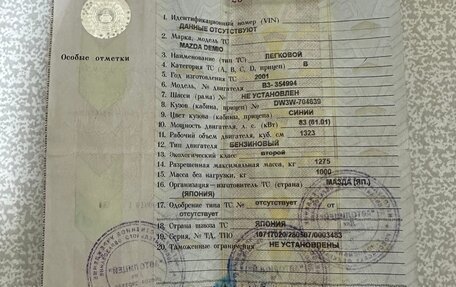 Особые отметки
1. Идентификационный номер (VIN)
ДАННЫЕ ОТСУТСТВУЮТ
2. Марка, модель ТС
MAZDA DEMIO
3. Наименование (тип ТС) ЛЕГКОВОЙ
4. Категория ТС (А, В, С, D, прицеп) B
5. Год изготовления ТС 2001
6. Модель, № двигателя B3- 354994
7. Шасси (рама) № НЕ УСТАНОВЛЕН
8. Кузов (кабина, прицеп) № DW3W-704639
9. Цвет кузова (кабины, прицепа) СИНИЙ
10. Мощность двигателя, л. с. (кВт) 83 (61.01)
11. Рабочий объем двигателя, куб. см 1323
12. Тип двигателя БЕНЗИНОВЫЙ
13. Экологический класс второй
14. Разрешенная максимальная масса, кг 1275
15. Масса без нагрузки, кг 1000
16. Организация – изготовитель ТС (страна) МАЗДА (ЯП.)
(ЯПОНИЯ)
17. Одобрение типа ТС № отсутствует от
отсутствует
18. Страна вывоза ТС ЯПОНИЯ
19. Серия, № ТД, ТПО 10717020/280507/0003483
20. Таможенные ограничения НЕ УСТАНОВЛЕНЫ